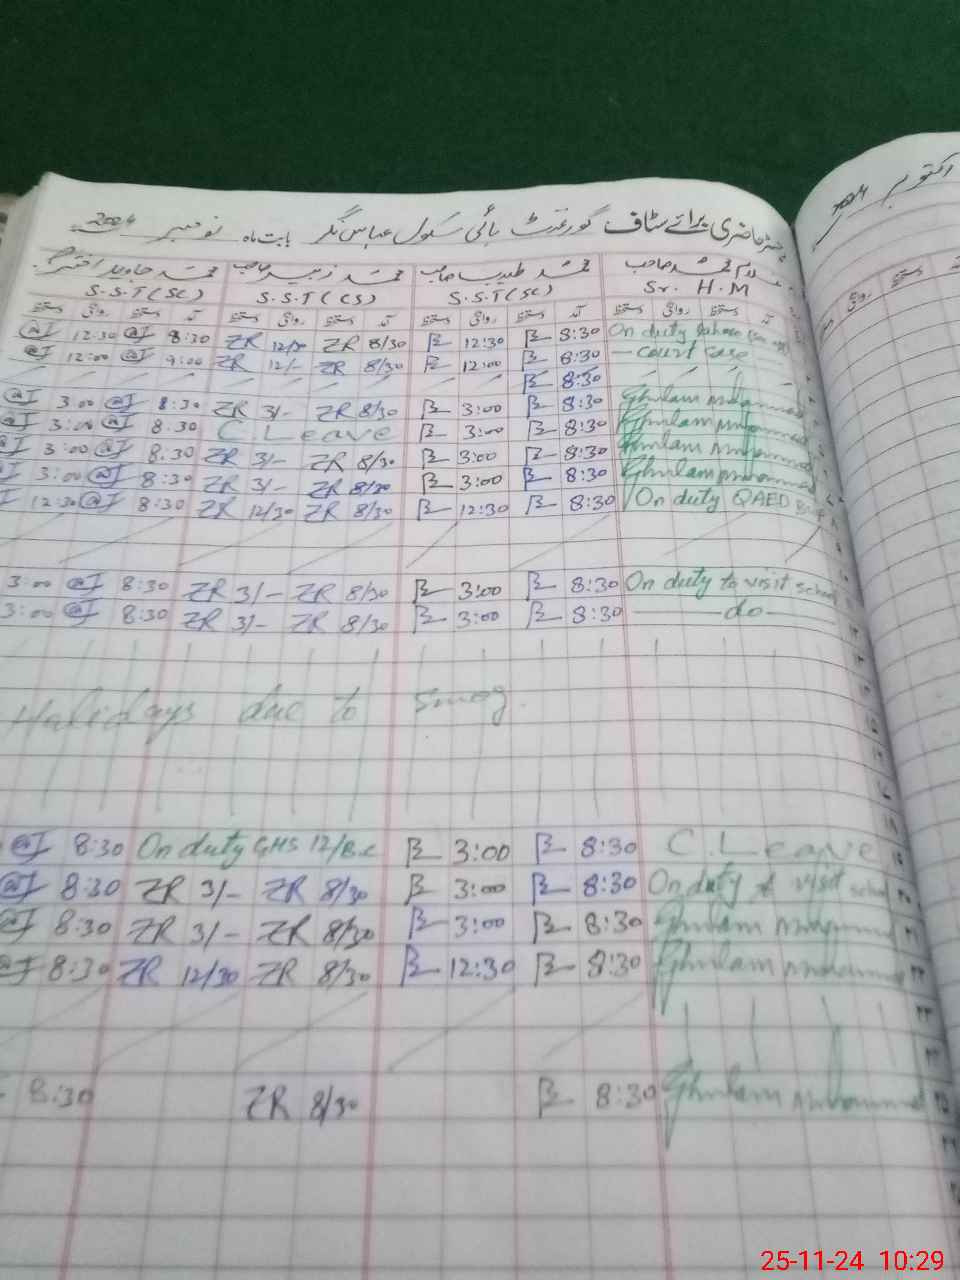 حاضری برائے سٹاف گورنمنٹ ہائی سکول عباس نگر بابت ماہ نومبر 2024
اکتوبر
غلام محمد صاحب محمد طیب صاحب محمد زبیر صاحب محمد جاوید اختر
S.S.T (SC) S.S.T (CS) S.S.T (SC) Sr. H.M
@I 12:30 @I 8:30 ZR 12/30 ZR 8/30 12:30 8:30 On duty Lahore
@I 12:00 @I 9:00 ZR 12/- ZR 8/30 12:00 8:30 — court case
8:30
@I 3:00 @I 8:30 ZR 3/- ZR 8/30 3:00 8:30 Ghulam Muhammad
3:00 @I 8:30 C. Leave 3:00 8:30 Ghulam Muhammad
3:00 @I 8:30 ZR 3/- ZR 8/30 3:00 8:30 Ghulam Muhammad
3:00 @I 8:30 ZR 3/- ZR 8/30 3:00 8:30 Ghulam Muhammad
12:30 @I 8:30 ZR 12/30 ZR 8/30 12:30 8:30 On duty QAED
3:00 @I 8:30 ZR 3/- ZR 8/30 3:00 8:30 On duty to visit school
3:00 @I 8:30 ZR 3/- ZR 8/30 3:00 8:30 — do —
Halidays due to Smog.
@I 8:30 On duty GHS 12/B.C 3:00 8:30 C. Leave ۱۹
@I 8:30 ZR 3/- ZR 8/30 3:00 8:30 On duty visit school ۲۰
@I 8:30 ZR 3/- ZR 8/30 3:00 8:30 Ghulam Muhammad ۲۱
@I 8:30 ZR 12/30 ZR 8/30 12:30 8:30 Ghulam Muhammad ۲۲
۲۳
۲۴
8:30 ZR 8/30 8:30 Ghulam Muhammad ۲۵
۲۶
25-11-24 10:29